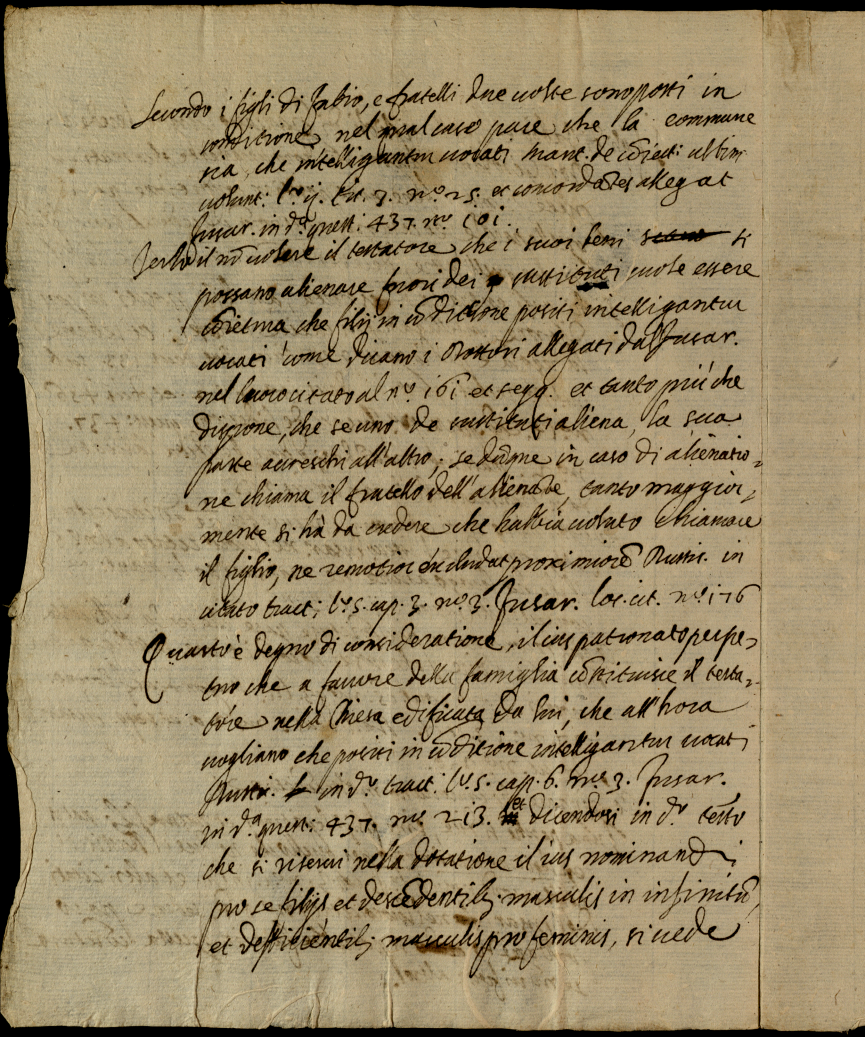 Secondo i figli di fabio, e fratelli due uolte sono posti in
conditione, nel qual caso pare che la commune
sia, che intelligantur uocati Mant. de cōiect: ultim
uolunt: l.º ij. tit. 7. nº 25. et concordātes allegat
fusar. in dª quest. 437. nº 101.
Terzo il nō uolere il testatore che i suoi beni si
possano alienare fuori dei sustituti suole essere
cōiettura che filij in cōditione positi intelligantur
uocati come dicano i Dottori allegati dal fusar.
nel luoco citato al nº 161 et seqq. et tanto più che
dispone, che se uno de sustituti aliena, la sua
parte accreschi all'altro; se dūque in caso di alienatio-
ne chiama il fratello dell'alienāte, tanto maggior-
mente si hà da credere che habbia uoluto chiamare
il figlio, ne remotior excludat proximiorē Rustic. in
citato tract; l.º 5. cap. 3. nº 3. fusar. loc. cit. nº 176
Quarto è degno di consideratione, il ius patronato perpe-
tuo che a fauore della famiglia cōstituisce il testa-
tore nella Chiesa edificata da lui, che all'hora
uogliano che positi in cōditione intelligantur uocati
Rustic. in dº tract: l.º 5. cap. 6. nº 3. fusar.
in dª quest: 437. nº 213. et dicendosi in dº testo
che si riserui nella dotatione il ius nominandi
pro se filijs et descēdentib; masculis in infinitū,
et deficiētib; masculis pro feminis, si uede